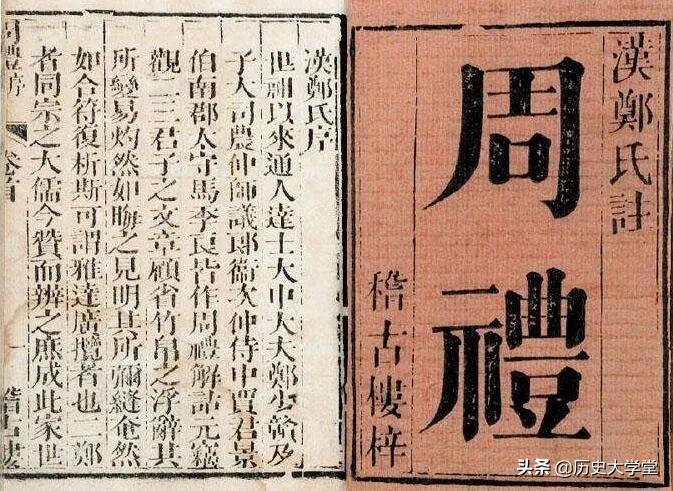 漢鄭氏註
周禮
稽古樓梓
漢鄭氏序
世祖以來通人達士大中大夫鄭少贛及
子大司農仲師議郎衞次仲侍中賈君景
伯南郡太守馬季長皆作周禮解詁元竊
觀二三君子之文章顧省竹帛之浮辭其
所變易灼然如晦之見明其所彌縫奄然
如合符復析斯可謂雅達廣攬者也二鄭
者同宗之大儒今贊而辨之庶成此家世
周禮序 卷首 一 稽古樓
头条 @历史大学堂